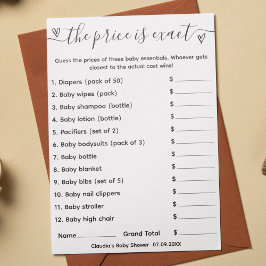 the price is exact
Guess the prices of these baby essentials. Whoever gets
closest to the actual cost wins!
1. Diapers (pack of 50) $
2. Baby wipes (pack) $
3. Baby shampoo (bottle) $
4. Baby lotion (bottle) $
5. Pacifiers (set of 2) $
6. Baby bodysuits (pack of 3) $
7. Baby bottle $
8. Baby blanket $
9. Baby bibs (set of 5) $
10. Baby nail clippers $
11. Baby stroller $
12. Baby high chair $
Name Grand Total $
Claudia's Baby Shower 07.09.20XX